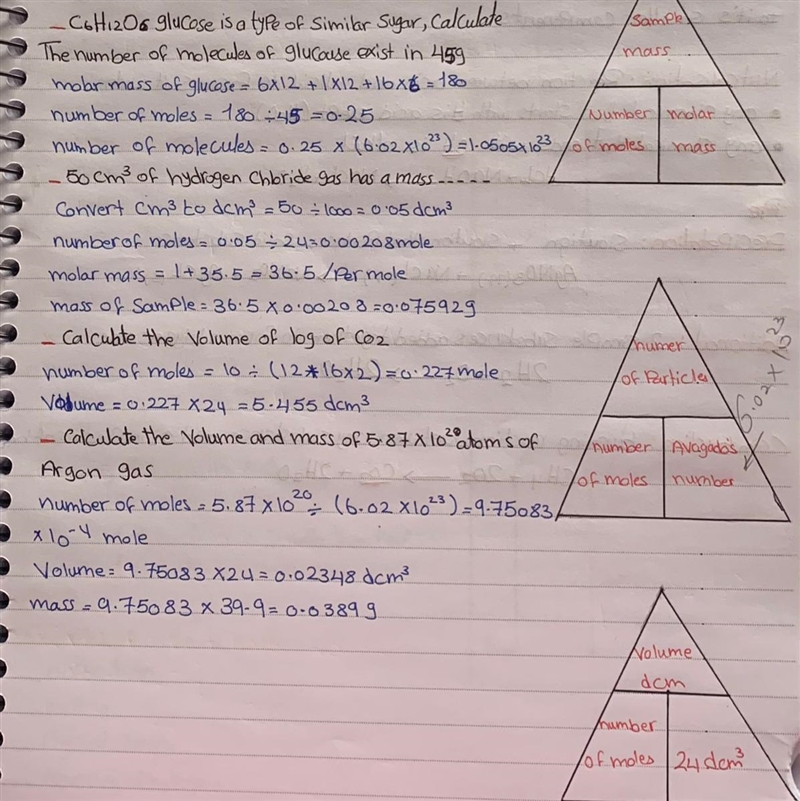 - C6H12O6 glucose is a type of Similar Sugar, Calculate
The number of molecules of glucause exist in 45g
molar mass of glucose = 6x12 + 1x12 + 16x6 = 180
number of moles = 180 ÷ 45 = 0.25
number of molecules = 0.25 x (6.02x10²³) = 1.0505x10²³
- 50 cm³ of hydrogen Chloride gas has a mass -----
Convert Cm³ to dcm³ = 50 ÷ 1000 = 0.05 dcm³
number of moles = 0.05 ÷ 24 = 0.00208 mole
molar mass = 1 + 35.5 = 36.5 / Per mole
mass of Sample = 36.5 x 0.00208 = 0.07592g
- Calculate the Volume of 10g of Co2
number of moles = 10 ÷ (12*16x2) = 0.227 mole
Volume = 0.227 x 24 = 5.455 dcm³
- Calculate the Volume and mass of 5.87x10²⁰ atoms of
Argon gas
number of moles = 5.87 x 10²⁰ ÷ (6.02 x 10²³) = 9.75083
x10⁻⁴ mole
Volume = 9.75083 x 24 = 0.02348 dcm³
mass = 9.75083 x 39.9 = 0.0389 g
Sample
mass
Number
of moles
molar
mass
numer
of Particles
number
of moles
Avagados
number
6.02 x 10²³
Volume
dcm
number
of moles
24 dcm³